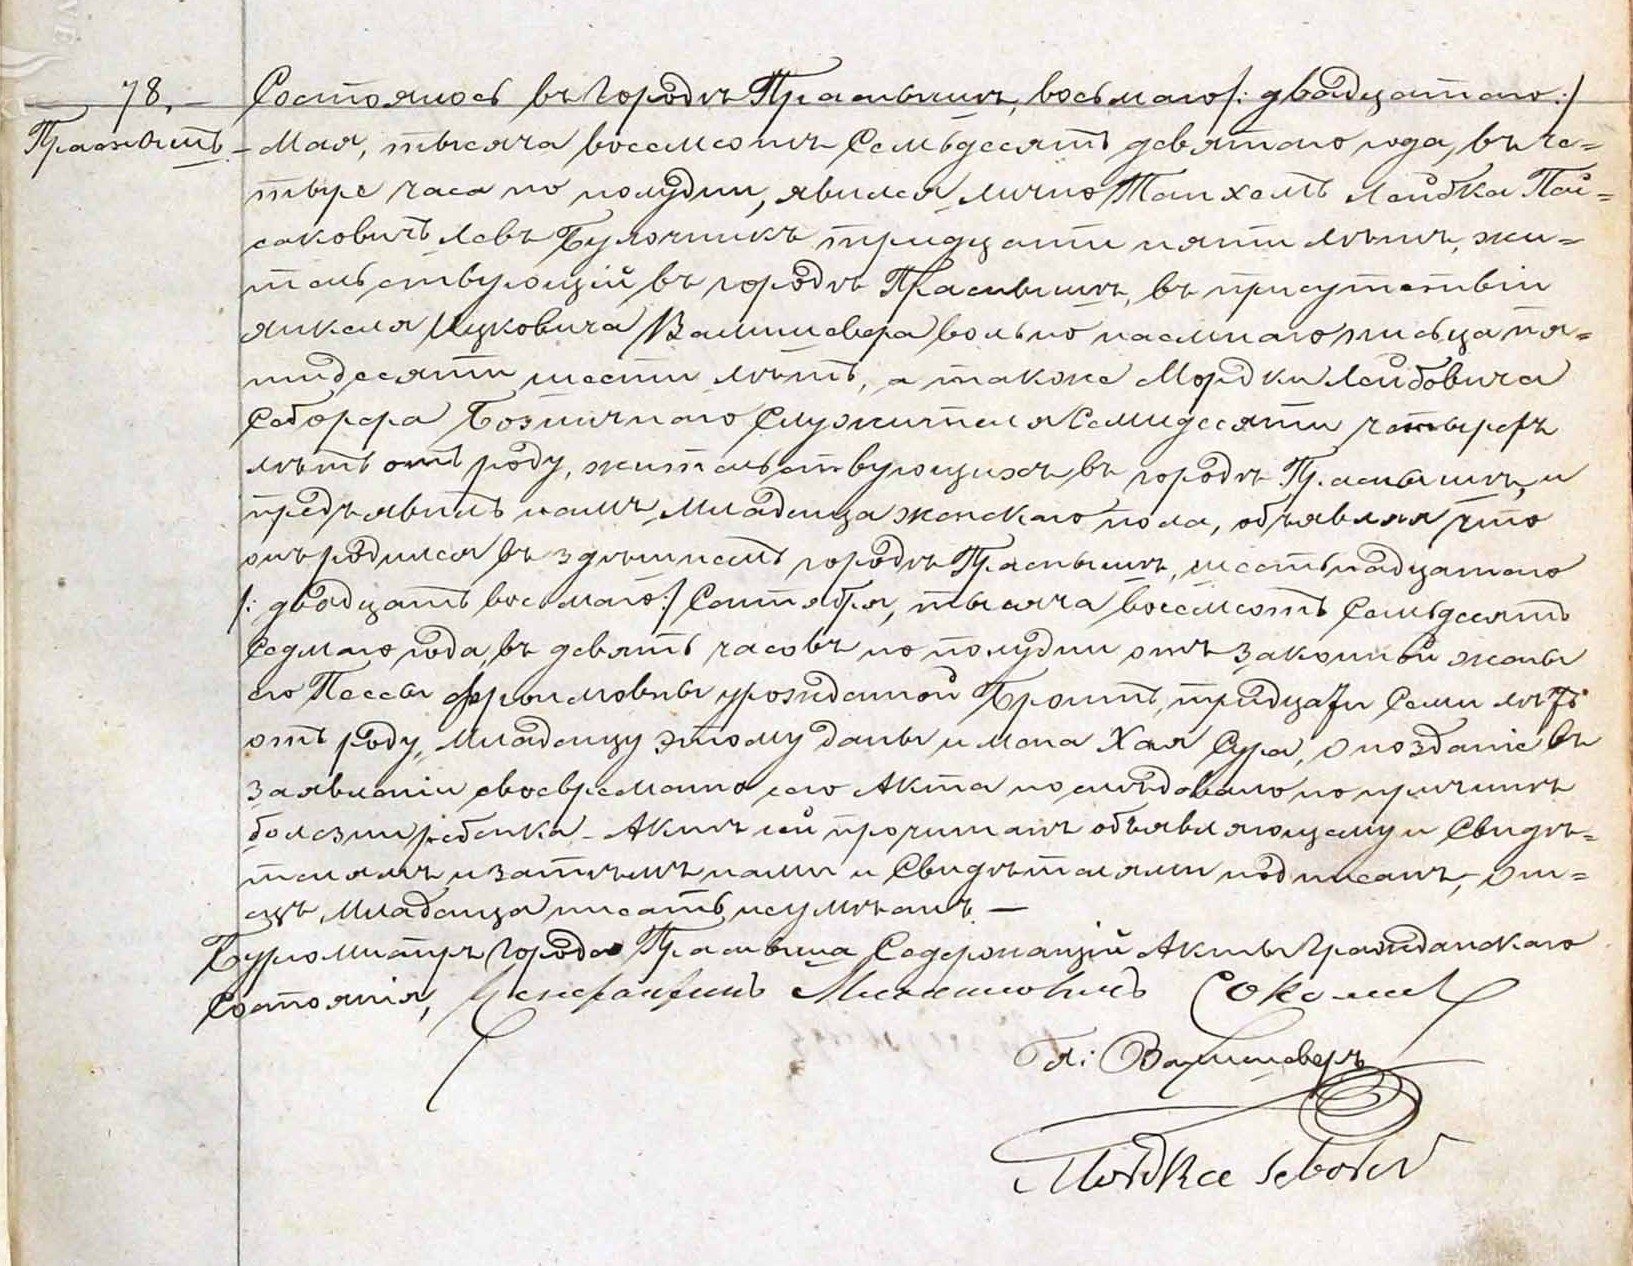 78.
Праснышъ
Состоялось въ городѣ Праснышѣ, восьмаго /: двадцатаго :/
Мая, тысяча восемсотъ семьдесятъ девятаго года, въ че=
тыре часа по полудни, явился лично Танхелъ Лейбка Пай=
саковичъ Левъ Булочникъ тридцати пяти лѣтъ, жи=
тельствующій въ городѣ Праснышѣ, въ присутствіи
Янкеля Ицковича Валишевера вольно наемнаго писца пя=
тидесяти шести лѣтъ, а также Мордки Лейбовича
Божничнаго Служителя Семидесяти четырехъ
лѣтъ отъ роду, жительствующихъ въ городѣ Праснышѣ, и
предъявилъ намъ младенца женскаго пола, объявляя что
онъ родился въ здѣшнемъ городѣ Праснышѣ, шестьнадцатаго
/: двадцать восьмаго :/ Сентября, тысяча восемсотъ Семьдесятъ
Седмаго года, въ девять часовъ по полудни отъ законной жены
его Пессы Фроимовны урожденной Бромъ, тридцати Семи лѣтъ
отъ роду, младенцу этому даны имена Хая Сура, опозданіе въ
заявленіи своевременно сего Акта послѣдовало по причинѣ
болезни ребенка – Актъ сей прочитанъ объявляющему и Свидѣ=
телямъ и затѣмъ нами и Свидѣтелями подписанъ, от=
ецъ младенца писать неумѣетъ. —
Бургомистръ города Прасныша Содержащій Акты Гражданскаго
Состоянія, Соколъ
Я: Валишеверъ
Mordka Seborer